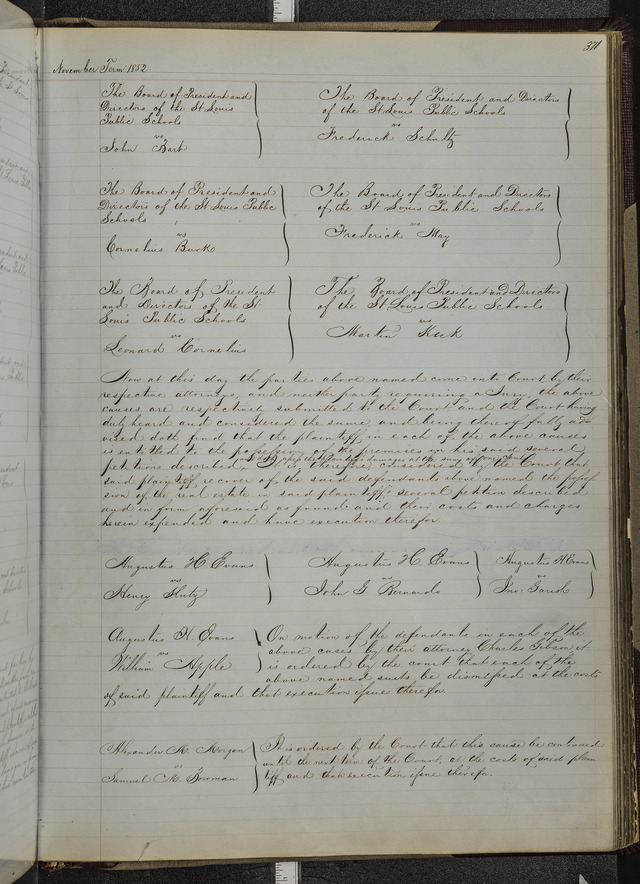 371
November Term 1852.
The Board of President and
Directors of the St Louis
Public Schools
vs
John Bark
The Board of President and Directors
of the St. Louis Public Schools
vs
Frederick Schultz
The Board of President and
Directors of the St Louis Public
Schools
vs
Cornelius Burk
The Board of President and Directors
of the St Louis Public Schools
vs
Frederick May
The Board of President
and Directors of the St
Louis Public Schools
vs
Leonard Cornelius
The Board of President and Directors
of the St Louis Public Schools
vs
Martin Keck
Now at this day the parties above named come into Court by their
respective attorneys, and neither party requiring a Jury, the above
causes are respectively submitted to the Court and the Court having
duly heard and considered the same, and being thereof fully ad=
vised doth find that the plaintiff in each of the above causes
is entitled to the possession of the premises in his said several
petitions described. It is therefore considered by the Court that
said plaintiff recover of the said defendants above named the posses
sion of the real estate in said plaintiffs several petition described
and in form aforesaid as found and their costs and charges
herein expended and have execution therefor.
Augustus H. Evans
vs
Henry Hutz
Augustus H. Evans
vs
John G Bernardo
Augustus H Evans
vs
Jno. Sarish
Augustus H. Evans
vs
William Apple
On motion of the defendants in each of the
above cases by their attorney Charles Gibson it
is ordered by the court that each of the
above named suits be dismissed at the costs
of said plaintiff and that execution issue therefor.
Alexander M. Morgan
vs
Samuel M. Bowman
It is ordered by the Court that this cause be continued
until the next term of the Court, at the costs of said plain
tiff and that execution issue therefor.